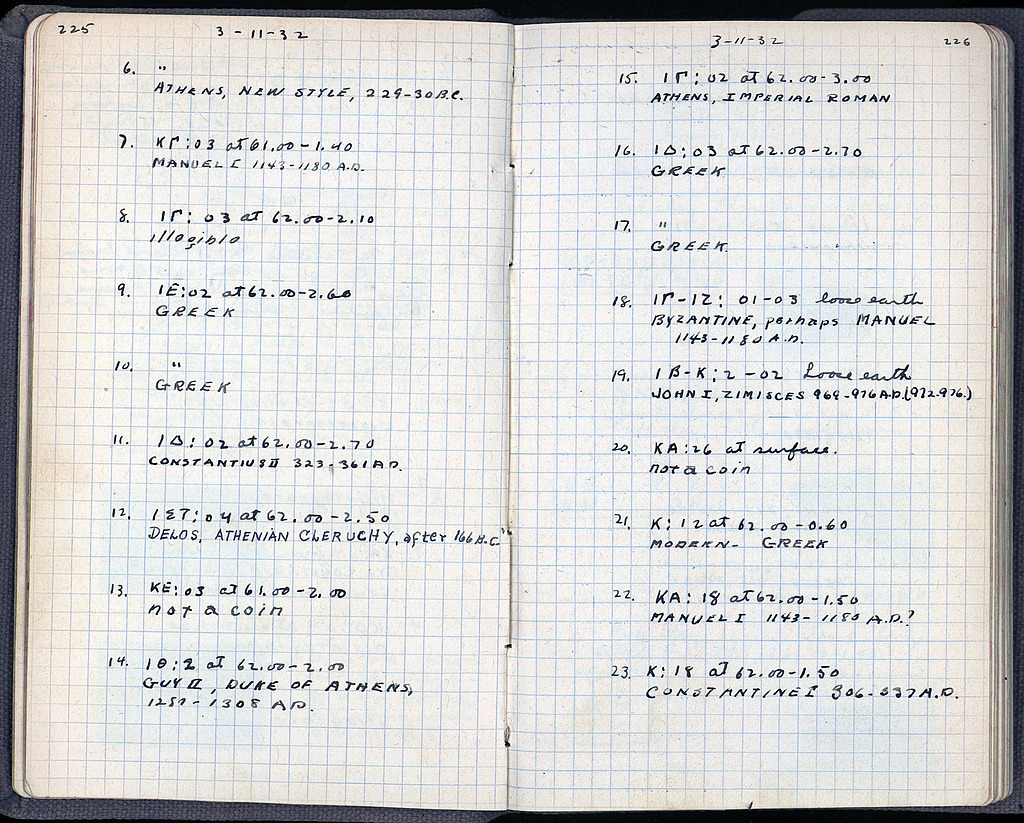 225
3-11-32
6. "
ATHENS, NEW STYLE, 229-30 B.C.
7. ΚΓ:03 at 61.00-1.40
MANUEL I 1143-1180 A.D.
8. ΙΓ:03 at 62.00-2.10
illegible
9. ΙΕ:02 at 62.00-2.60
GREEK
10. "
GREEK
11. ΙΔ:02 at 62.00-2.70
CONSTANTIUS II 323-361 A.D.
12. ΙΣΤ:04 at 62.00-2.50
DELOS, ATHENIAN CLERUCHY, after 166 B.C.
13. ΚΕ:03 at 61.00-2.00
not a coin
14. ΙΘ:2 at 62.00-2.00
GUY II, DUKE OF ATHENS,
1287-1308 A.D.
3-11-32
226
15. ΙΓ:02 at 62.00-3.00
ATHENS, IMPERIAL ROMAN
16. ΙΔ:03 at 62.00-2.70
GREEK
17. "
GREEK
18. ΙΓ-ΙΖ: 01-03 loose earth
BYZANTINE, perhaps MANUEL
1143-1180 A.D.
19. ΙΒ-Κ; 2-02 Loose earth
JOHN I, ZIMISCES 969-976 A.D. (972-976.)
20. ΚΑ:26 at surface.
not a coin
21. Κ:12 at 62.00-0.60
MODERN- GREEK
22. ΚΑ:18 at 62.00-1.50
MANUEL I 1143-1180 A.D.?
23. Κ:18 at 62.00-1.50
CONSTANTINE I 306-337 A.D.